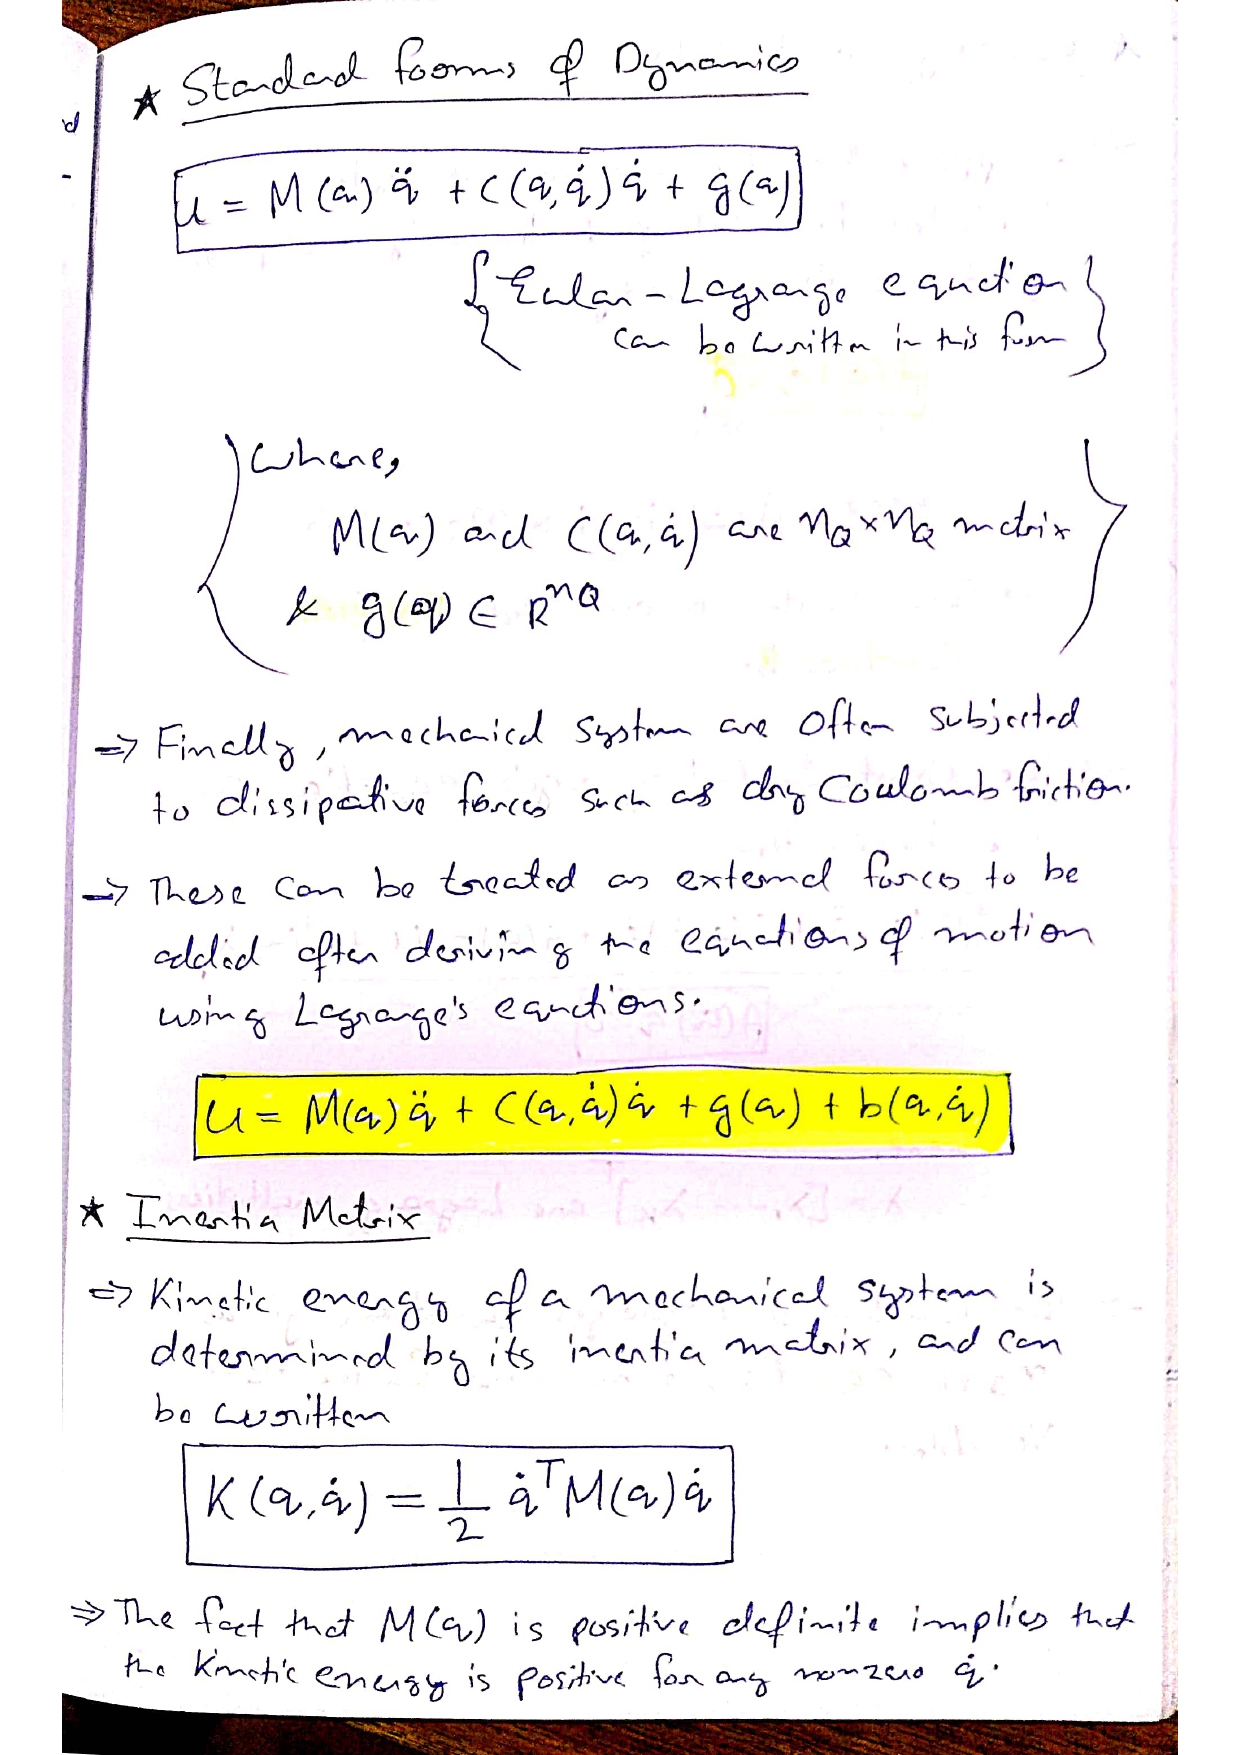 ★ Standard forms of Dynamics
u = M(q) q̈ + C(q, q̇) q̇ + g(q)
{ Eular-Lagrange equation
can be written in this form }
where,
M(q) and C(q, q̇) are n_Q × n_Q matrix
& g(q) ∈ R^{n_Q}
⇒ Finally, mechanical system are often subjected
to dissipative forces such as dry Coulomb friction.
→ These can be treated as external forces to be
added after deriving the equations of motion
using Lagrange's equations.
u = M(q) q̈ + C(q, q̇) q̇ + g(q) + b(q, q̇)
★ Inertia Matrix
⇒ Kinetic energy of a mechanical system is
determined by its inertia matrix, and can
be written
K(q, q̇) = 1/2 q̇ᵀ M(q) q̇
⇒ The fact that M(q) is positive definite implies that
the Kinetic energy is positive for any nonzero q̇.